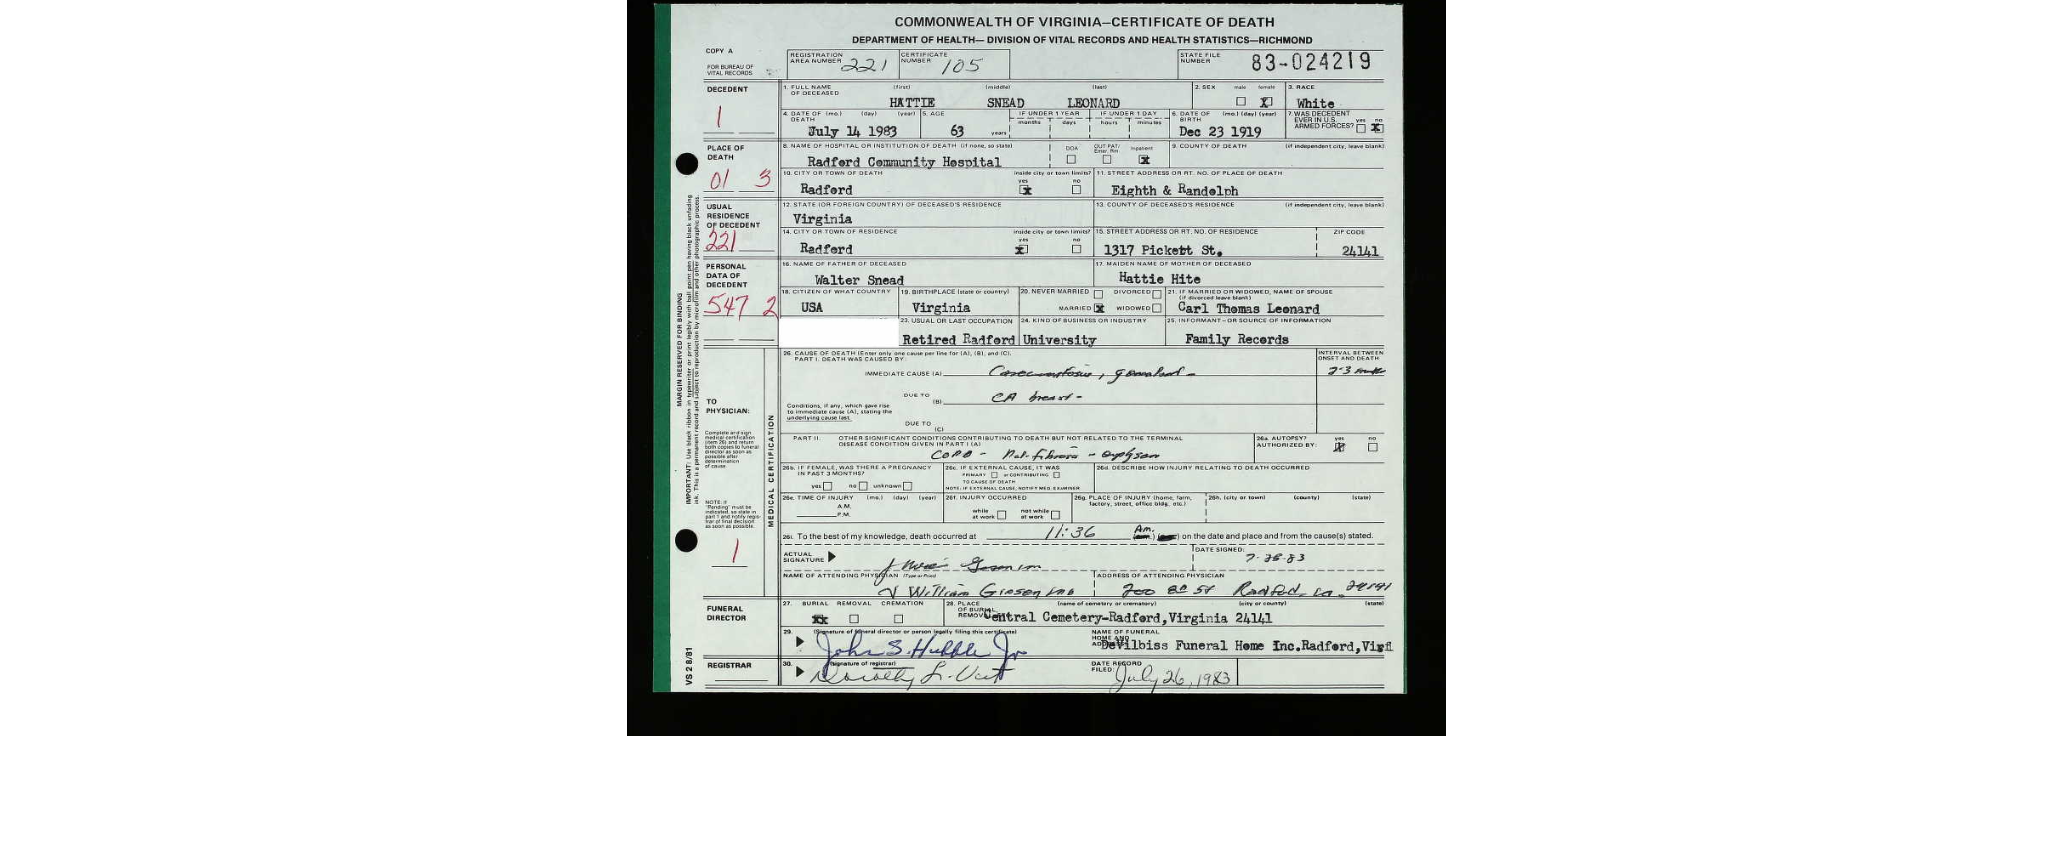 COMMONWEALTH OF VIRGINIA—CERTIFICATE OF DEATH
DEPARTMENT OF HEALTH— DIVISION OF VITAL RECORDS AND HEALTH STATISTICS—RICHMOND
COPY A
FOR BUREAU OF VITAL RECORDS
REGISTRATION AREA NUMBER 221
CERTIFICATE NUMBER 105
STATE FILE NUMBER 83-024219
DECEDENT
1
1. FULL NAME OF DECEASED (first) (middle) (last)
HATTIE SNEAD LEONARD
2. SEX male female X
3. RACE
White
4. DATE OF DEATH (mo.) (day) (year)
July 14 1983
5. AGE
63 years
IF UNDER 1 YEAR months days
IF UNDER 1 DAY hours minutes
6. DATE OF BIRTH (mo.) (day) (year)
Dec 23 1919
7. WAS DECEDENT EVER IN U.S. ARMED FORCES? yes no X
PLACE OF DEATH
01 3
8. NAME OF HOSPITAL OR INSTITUTION OF DEATH (if none, so state)
Radford Community Hospital
DOA OUT PAT/ Emer. Rm Inpatient X
9. COUNTY OF DEATH (if independent city, leave blank)
10. CITY OR TOWN OF DEATH inside city or town limits? yes no
Radford X
11. STREET ADDRESS OR RT. NO. OF PLACE OF DEATH
Eighth & Randolph
USUAL RESIDENCE OF DECEDENT
221
12. STATE (OR FOREIGN COUNTRY) OF DECEASED'S RESIDENCE
Virginia
13. COUNTY OF DECEASED'S RESIDENCE (if independent city, leave blank)
14. CITY OR TOWN OF RESIDENCE inside city or town limits? yes no
Radford X
15. STREET ADDRESS OR RT. NO. OF RESIDENCE ZIP CODE
1317 Pickett St. 24141
PERSONAL DATA OF DECEDENT
547 2
16. NAME OF FATHER OF DECEASED
Walter Snead
17. MAIDEN NAME OF MOTHER OF DECEASED
Hattie Hite
18. CITIZEN OF WHAT COUNTRY
USA
19. BIRTHPLACE (state or country)
Virginia
20. NEVER MARRIED DIVORCED
MARRIED X WIDOWED
21. IF MARRIED OR WIDOWED, NAME OF SPOUSE (if divorced leave blank)
Carl Thomas Leonard
23. USUAL OR LAST OCCUPATION
Retired Radford
24. KIND OF BUSINESS OR INDUSTRY
University
25. INFORMANT—OR SOURCE OF INFORMATION
Family Records
MARGIN RESERVED FOR BINDING
IMPORTANT: Use black ribbon in typewriter or print legibly with ball point pen having black unfading ink. This is a permanent record and subject to reproduction by microfilm and other photographic process.
MEDICAL CERTIFICATION
TO PHYSICIAN:
Complete and sign medical certification (item 26) and return both copies to funeral director as soon as possible after determination of cause
NOTE: If "Pending" must be indicated, so state in part 1 and notify registrar of final decision as soon as possible.
1
26. CAUSE OF DEATH (Enter only one cause per line for (A), (B), and (C).
PART I. DEATH WAS CAUSED BY:
INTERVAL BETWEEN ONSET AND DEATH
IMMEDIATE CAUSE (A)
2-3
DUE TO (B) CA breast -
Conditions, if any, which gave rise to immediate cause (A), stating the underlying cause last.
DUE TO (C)
PART II. OTHER SIGNIFICANT CONDITIONS CONTRIBUTING TO DEATH BUT NOT RELATED TO THE TERMINAL DISEASE CONDITION GIVEN IN PART I (A)
COPD -
26a. AUTOPSY? AUTHORIZED BY: yes X no
26b. IF FEMALE, WAS THERE A PREGNANCY IN PAST 3 MONTHS?
yes no unknown
26c. IF EXTERNAL CAUSE, IT WAS
PRIMARY or CONTRIBUTING
TO CAUSE OF DEATH
NOTE: IF EXTERNAL CAUSE, NOTIFY MED. EXAMINER
26d. DESCRIBE HOW INJURY RELATING TO DEATH OCCURRED
26e. TIME OF INJURY (mo.) (day) (year)
A.M.
P.M.
26f. INJURY OCCURRED
while at work not while at work
26g. PLACE OF INJURY (home, farm, factory, street, office bldg., etc.)
26h. (city or town) (county) (state)
26i. To the best of my knowledge, death occurred at 11:36 Am. (a.m.) on the date and place and from the cause(s) stated.
ACTUAL SIGNATURE
DATE SIGNED:
NAME OF ATTENDING PHYSICIAN (Type or Print)
William
ADDRESS OF ATTENDING PHYSICIAN
200 8th St Radford 24141
FUNERAL DIRECTOR
27. BURIAL REMOVAL CREMATION
XX
28. PLACE OF BURIAL, REMOVAL (name of cemetery or crematory) (city or county) (state)
Central Cemetery-Radford,Virginia 24141
29. (Signature of funeral director or person legally filing this certificate)
John S. Hubble Jr
NAME OF FUNERAL HOME AND
DeVilbiss Funeral Home Inc.Radford,Virg
REGISTRAR
30. (Signature of registrar)
Dorothy L.
DATE RECORD FILED:
July 26, 1983
VS 2 8/81